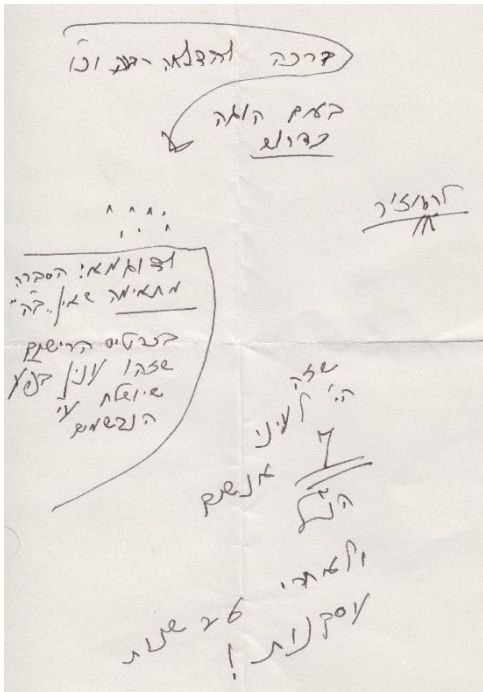 ברכה והצלחה רבה וכו'
בעם הוגה
כדרוש
להעזיר
ודוגמא: הסברה
מתאימה שאין "בה"
בכרטיס הרישום
שזהו ענין בפ"ע
שיושלח ע"י
הנרשמים
שזה
הי' לעיני
ד
אנשים
הנ"ל
ולאחרי
שנות
עסקנות!